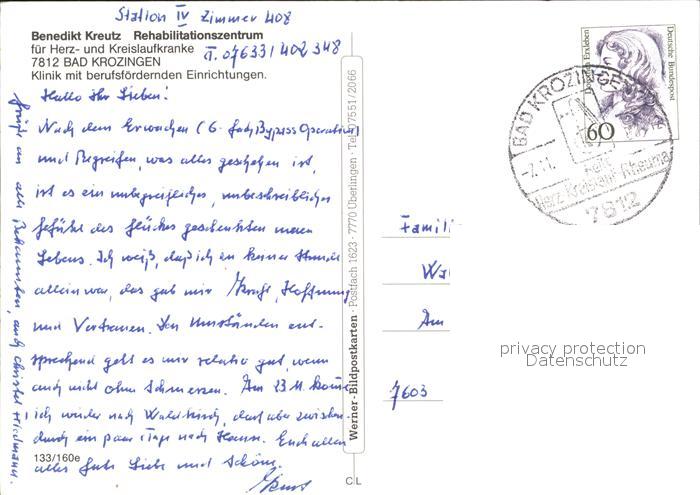 Station IV Zimmer 408
Benedikt Kreutz Rehabilitationszentrum
für Herz- und Kreislaufkranke T. 07633/402 348
7812 BAD KROZINGEN
Klinik mit berufsfördernden Einrichtungen.
Hallo Ihr Lieben!
Nach dem Erwachen (6-fach Bypass Operation)
und Begreifen, was alles geschehen ist,
ist es ein unbegreifliches, unbeschreibliches
Gefühl des Glückes geschenkten neuen
Lebens. Ich weiß, daß ich in keiner Stunde
allein war, das gab mir Kraft, Hoffnung
und Vertrauen. Den Umständen ent-
sprechend geht es mir relativ gut, wenn
auch nicht ohne Schmerzen. Am 23.11. komme
ich wieder nach Waldkirch, darf aber zwischen-
durch ein paar Tage nach Hause. Euch allen
alles Gute Liebe und Schöne
Grüße an alle Bekannten, auch Christel Friedmann.
133/160e
Werner-Bildpostkarten · Postfach 1623 · 7770 Überlingen · Tel. 07551/2066
C L
Deutsche Bundespost
60
BAD KROZINGEN
Herz Kreislauf Rheuma
7812
Famili
Wal
Am
7603
privacy protection
Datenschutz